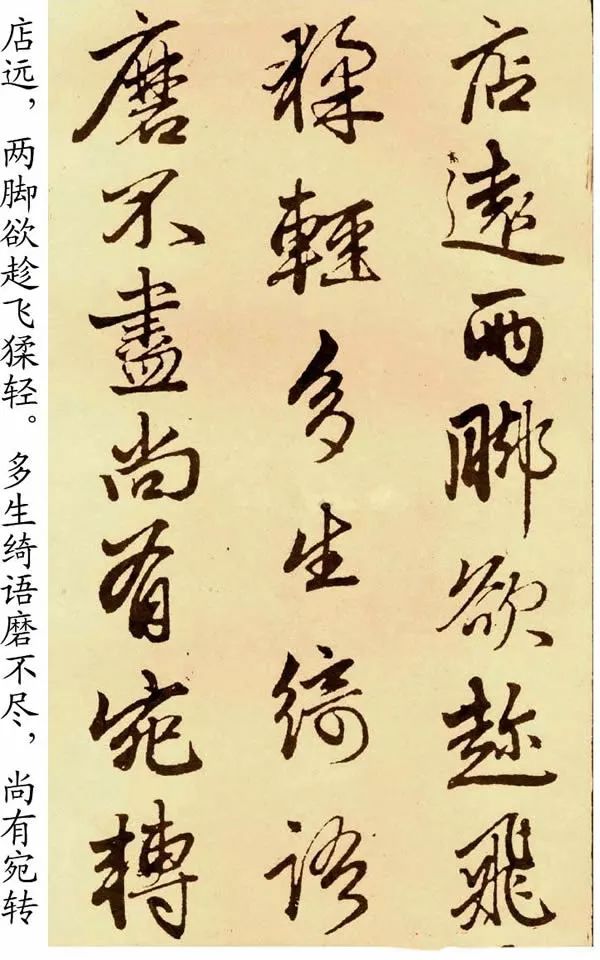 店遠兩脚欲趁飛
猱輕多生綺語
磨不盡尚有宛轉
店远，两脚欲趁飞猱轻。多生绮语磨不尽，尚有宛转